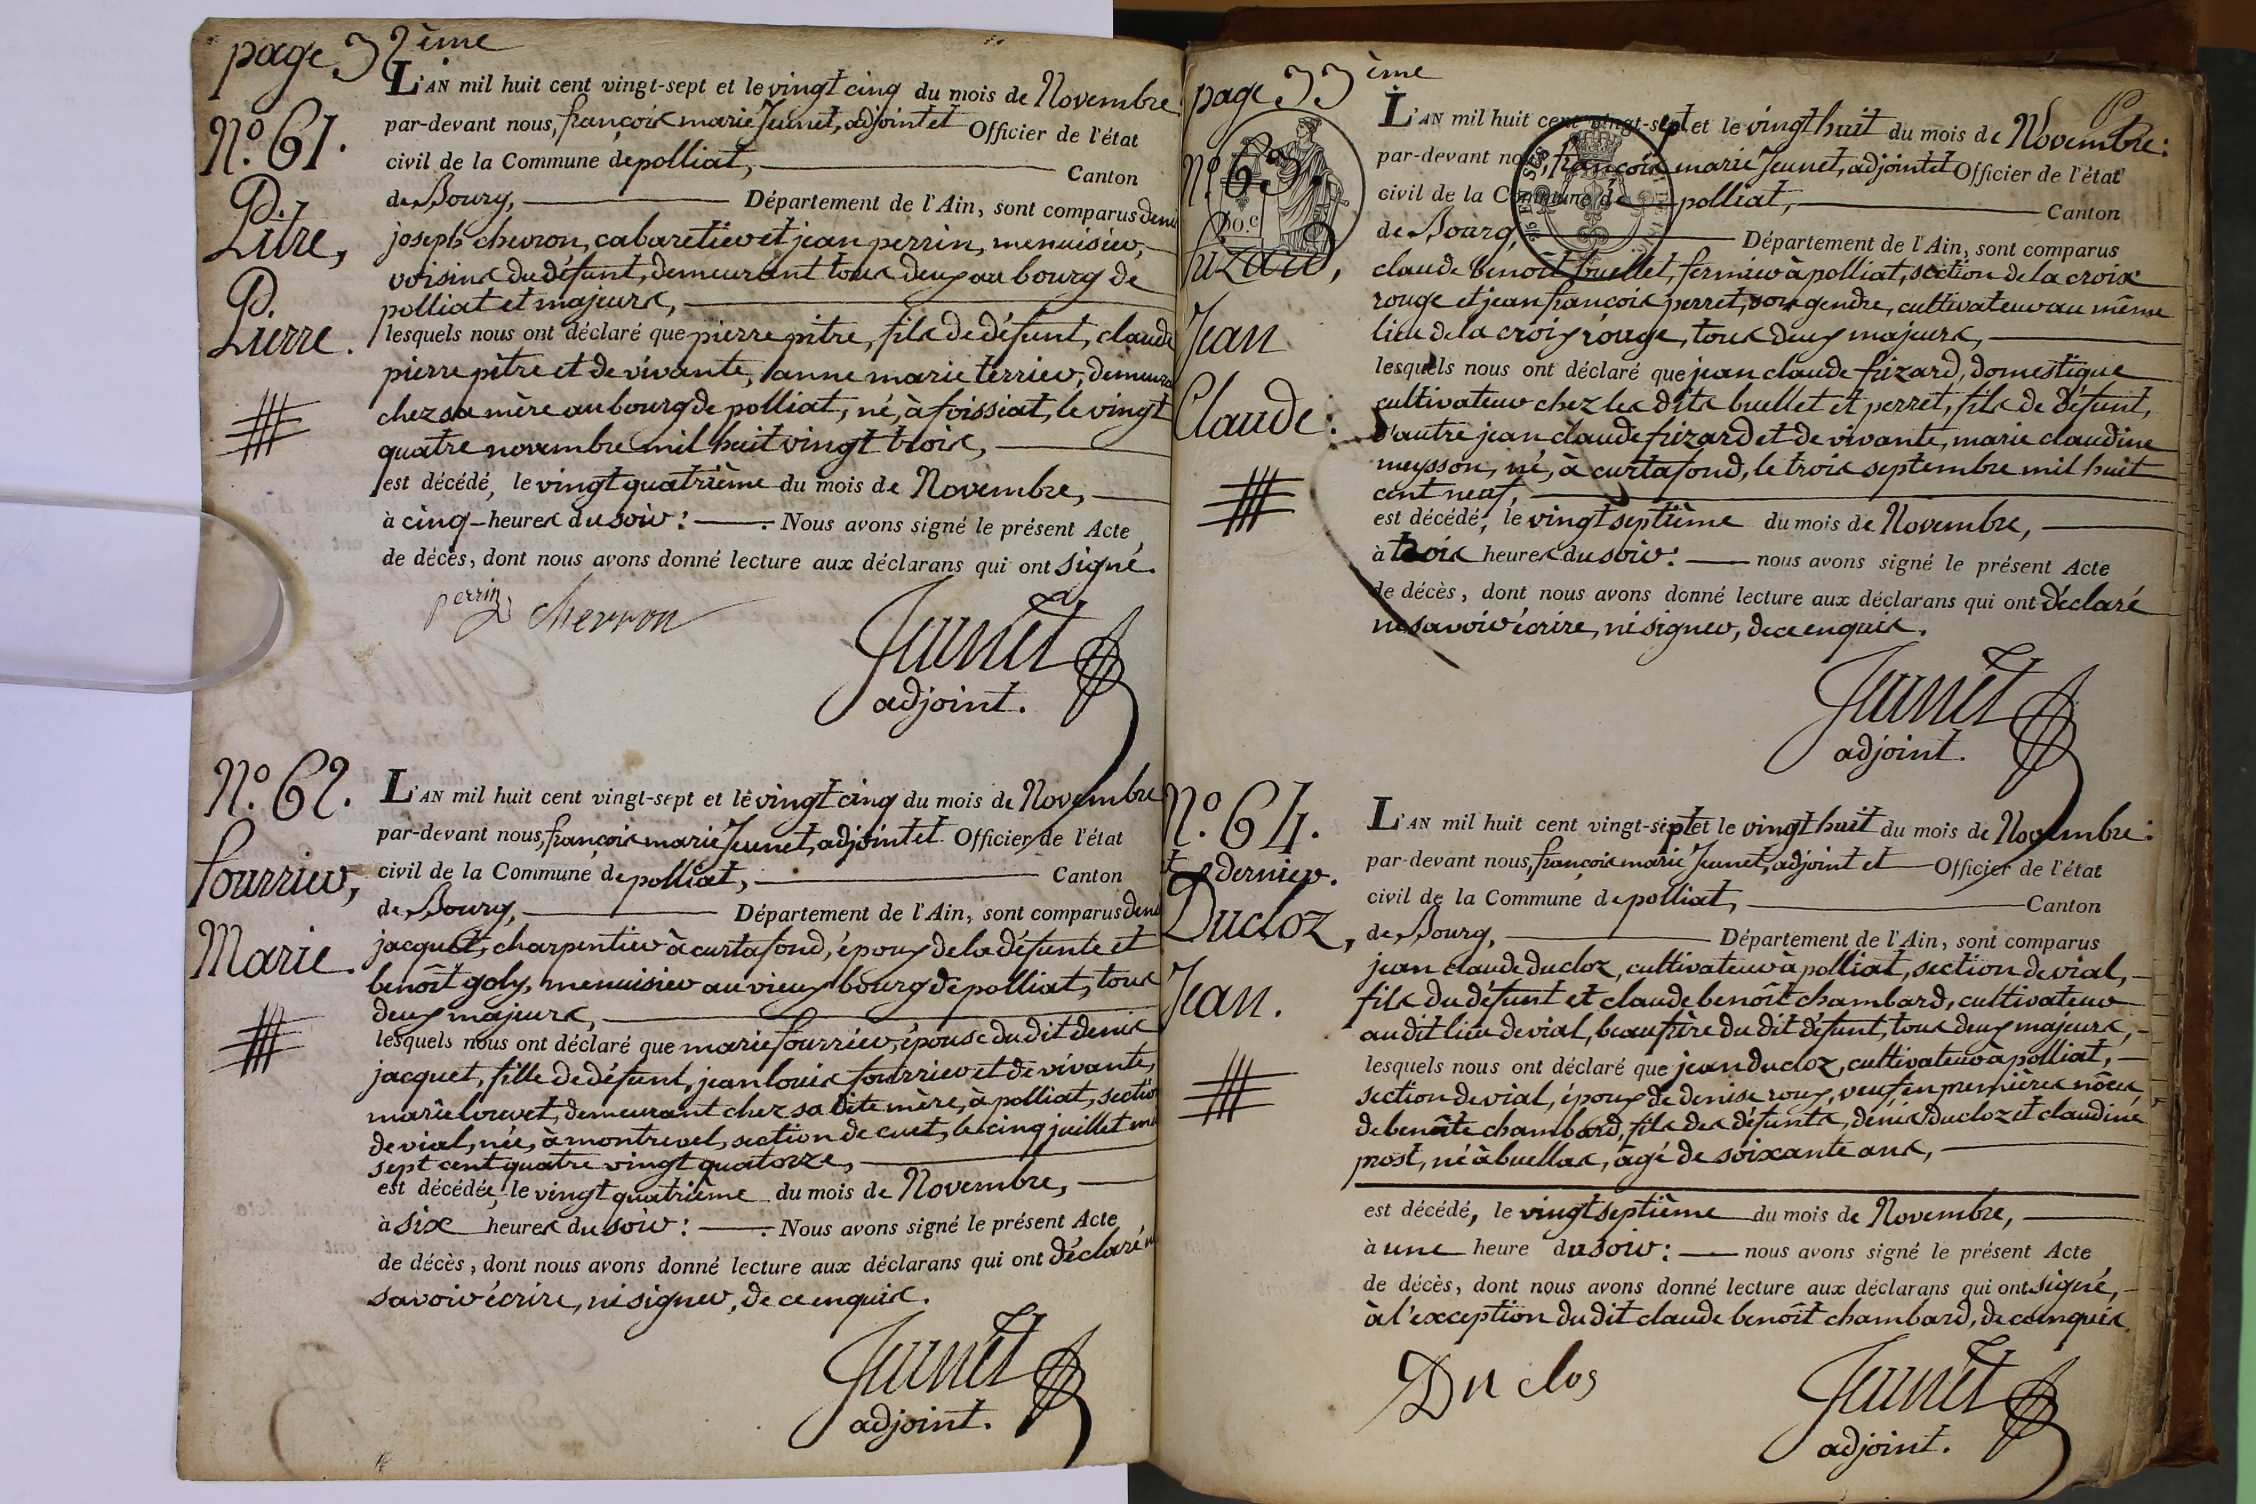 page 32ème
N.º 61.
Pitre,
Pierre.
L'AN mil huit cent vingt-sept et le vingt cinq du mois de Novembre
par-devant nous, françois marie Jeunet, adjoint et Officier de l'état
civil de la Commune de polliat, Canton
de Bourg, Département de l'Ain, sont comparus
joseph chevron, cabaretier et jean perrin, menuisier,
voisins du défunt, demeurant tous deux au bourg de
polliat et majeurs,
lesquels nous ont déclaré que pierre pitre, fils de défunt, claude
pierre pitre et de vivante, anne marie terrier, demeurant
chez sa mère au bourg de polliat, né, à foissiat, le vingt
quatre novembre mil huit vingt trois,
est décédé, le vingt quatrième du mois de Novembre,
à cinq heures du soir: Nous avons signé le présent Acte
de décès, dont nous avons donné lecture aux déclarans qui ont signé.
perrin chevron
Jeunet
adjoint.
N.º 62.
fourrier,
Marie.
L'AN mil huit cent vingt-sept et le vingt cinq du mois de Novembre
par-devant nous, françois marie Jeunet, adjoint et Officier de l'état
civil de la Commune de polliat, Canton
de Bourg, Département de l'Ain, sont comparus denis
jacquet, charpentier à curtafond, époux de la défunte et
benoît goly, menuisier au vieux bourg de polliat, tous
deux majeurs,
lesquels nous ont déclaré que marie fourrier, épouse du dit denis
jacquet, fille de défunt, jean louis fourrier et de vivante,
marie louvet, demeurant chez sa dite mère, à polliat, section
de vial, née, à montrevel, section de cuet, le cinq juillet mil
sept cent quatre vingt quatorze,
est décédée, le vingt quatrième du mois de Novembre,
à six heures du soir: Nous avons signé le présent Acte
de décès, dont nous avons donné lecture aux déclarans qui ont déclaré ne
savoir écrire, ni signer, de ce enquis.
Jeunet
adjoint.
page 33ème
N.º 63.
fuzard,
Jean
Claude:
L'AN mil huit cent vingt-sept et le vingt huit du mois de Novembre:
par-devant nous, françois marie Jeunet, adjoint et Officier de l'état
civil de la Commune de polliat, Canton
de Bourg, Département de l'Ain, sont comparus
claude benoît buellet, fermier à polliat, section de la croix
rouge et jean françois perret, son gendre, cultivateur au même
lieu de la croix rouge, tous deux majeurs,
lesquels nous ont déclaré que jean claude fuzard, domestique
cultivateur chez les dits buellet et perret, fils de défunt,
d'autre jean claude fuzard et de vivante, marie claudine
meysson, né, à curtafond, le trois septembre mil huit
cent neuf,
est décédé, le vingt septième du mois de Novembre,
à trois heures du soir: nous avons signé le présent Acte
de décès, dont nous avons donné lecture aux déclarans qui ont déclaré
ne savoir écrire, ni signer, de ce enquis.
Jeunet
adjoint.
N.º 64.
et dernier.
Ducloz,
Jean.
L'AN mil huit cent vingt-sept et le vingt huit du mois de Novembre:
par-devant nous, françois marie Jeunet, adjoint et Officier de l'état
civil de la Commune de polliat, Canton
de Bourg, Département de l'Ain, sont comparus
jean claude ducloz, cultivateur à polliat, section de vial,
fils du défunt et claude benoît chambard, cultivateur
au dit lieu de vial, beau frère du dit défunt, tous deux majeurs,
lesquels nous ont déclaré que jean ducloz, cultivateur à polliat,
section de vial, époux de denise roux, veuf, en premières nôces,
de benoîte chambard, fils des défunts, denis ducloz et claudine
prost, né à buellas, âgé de soixante ans,
est décédé, le vingt septième du mois de Novembre,
à une heure du soir: nous avons signé le présent Acte
de décès, dont nous avons donné lecture aux déclarans qui ont signé,
à l'exception du dit claude benoît chambard, de ce enquis.
Du clos
Jeunet
adjoint.